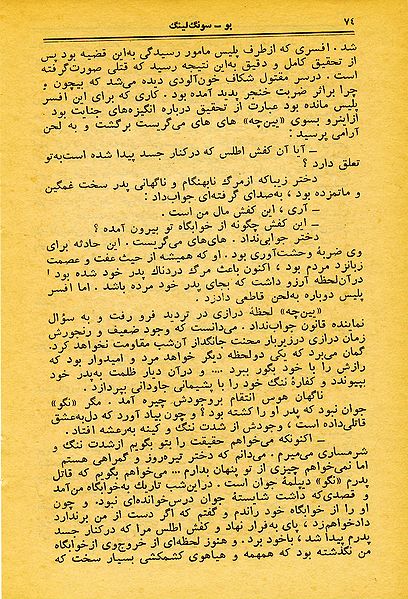 ۷٤
پو ـ سونگ‌لینگ
شد . افسری که ازطرف پلیس مامور رسیدگی به‌این قضیه بود پس
از تحقیق کامل و دقیق به‌این نتیجه رسید که قتلی صورت‌گرفته
است . درسر مقتول شکاف خون‌آلودی دیده می‌شد که بیچون و
چرا براثر ضربت خنجر پدید آمده بود . کاری که برای این افسر
پلیس مانده بود عبارت از تحقیق درباره انگیزه‌های جنایت بود .
ازاینرو بسوی «یین‌چه» های های می‌گریست برگشت و به لحن
آرامی پرسید :
ـ آیا آن کفش اطلس که درکنار جسد پیدا شده است‌به‌تو
تعلق دارد ؟
دختر زیباکه ازمرگ نابهنگام و ناگهانی پدر سخت غمگین
و ماتمزده بود ، به‌صدای گرفته‌ای جواب‌داد :
ـ آری ، این کفش مال من است .
ـ این کفش چگونه از خوابگاه تو بیرون آمده ؟
دختر جوابی‌نداد . های‌های می‌گریست . این حادثه برای
وی ضربهٔ وحشت‌آوری بود . او که همیشه از حیث عفت و عصمت
زبانزد مردم بود ، اکنون باعث مرگ دردناک پدر خود شده بود !
درآن‌لحظه آرزو داشت که بجای پدر خود مرده باشد . اما افسر
پلیس دوباره به‌لحن قاطعی دادزد .
«یین‌چه» لحظهٔ درازی در تردید فرو رفت و به سوُال
نماینده قانون جواب‌نداد . می‌دانست که وجود ضعیف و رنجورش
زمان درازی درزیربار محنت جانگداز آن‌شب مقاومت نخواهد کرد.
گمان می‌برد که یکی دولحظه دیگر خواهد مرد و امیدوار بود که
رازش را با خود بگور ببرد .... و درآن دیار ظلمت به‌پدر خود
بپیوندد و کفارهٔ ننگ خود را با پشیمانی جاودانی بپردازد .
ناگهان هوس انتقام بروجودش چیره آمد . مگر «نگو»
جوان نبود که پدر او را کشته بود ؟ و چون بیاد آورد که دل‌به‌عشق
قاتلی‌داده است ، وجودش از شدت ننگ و کینه به‌رعشه افتاد .
ـ اکنونکه می‌خواهم حقیقت را بتو بگویم ازشدت ننگ و
شرمساری می‌میرم . می‌دانم که دختر تیره‌روز و گمراهی هستم
اما نمی‌خواهم چیزی از تو پنهان بدارم ... می‌خواهم بگویم که قاتل
پدرم «نگو» دیپلمهٔ جوان است. دراین‌شب تاریک به‌خوابگاه من‌آمد
و قصدی‌که داشت شایستهٔ جوان درس‌خوانده‌ای نبود. و چون
او را از خوابگاه خود راندم و گفتم که اگر دست از من برندارد
دادخواهم‌زد ، پای به‌فرار نهاد و کفش اطلس مرا که درکنار جسد
پدرم پیدا شد ، باخود برد . و هنوز لحظه‌ای از خروج‌وی ازخوابگاه
من نگذشته بود که همهمه و هیاهوی کشمکشی بسیار سخت که